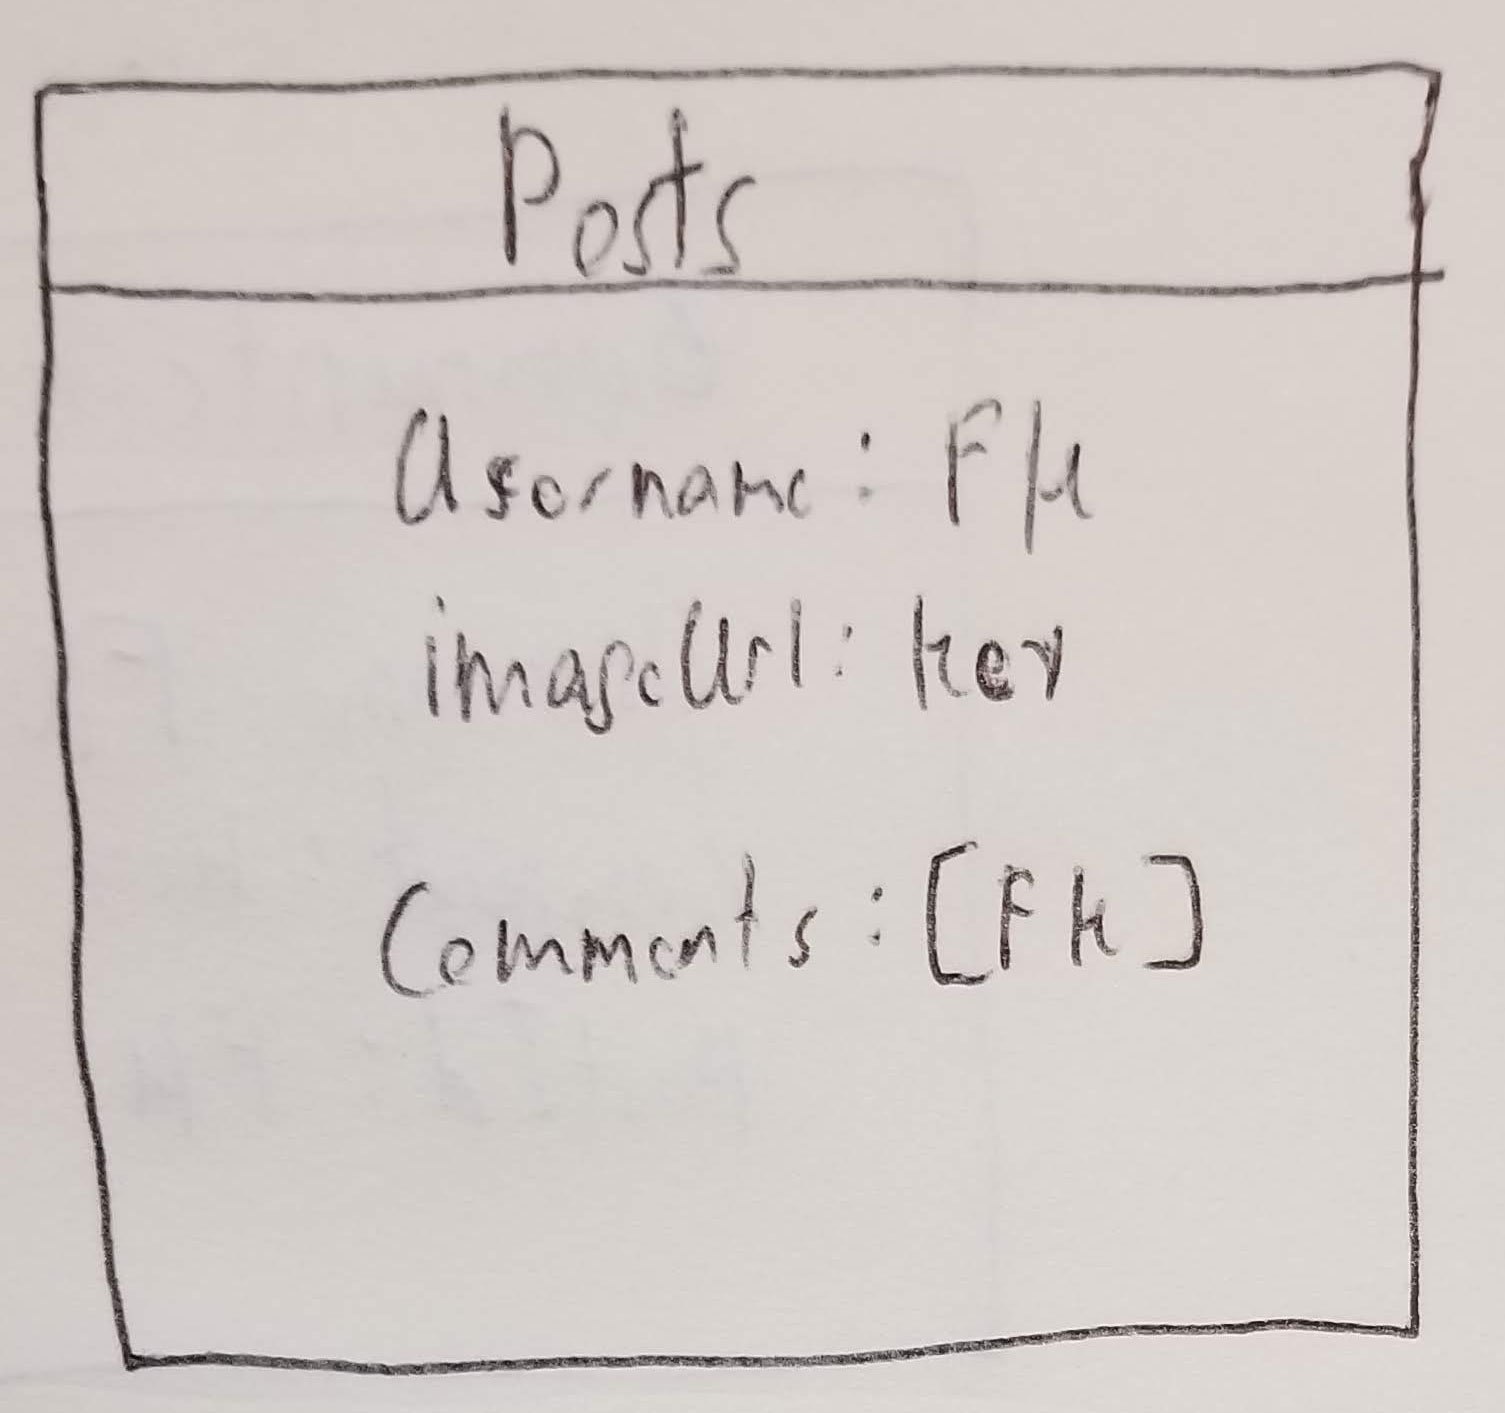 Posts
Username: FK
imageUrl: key
Comments: [FK]